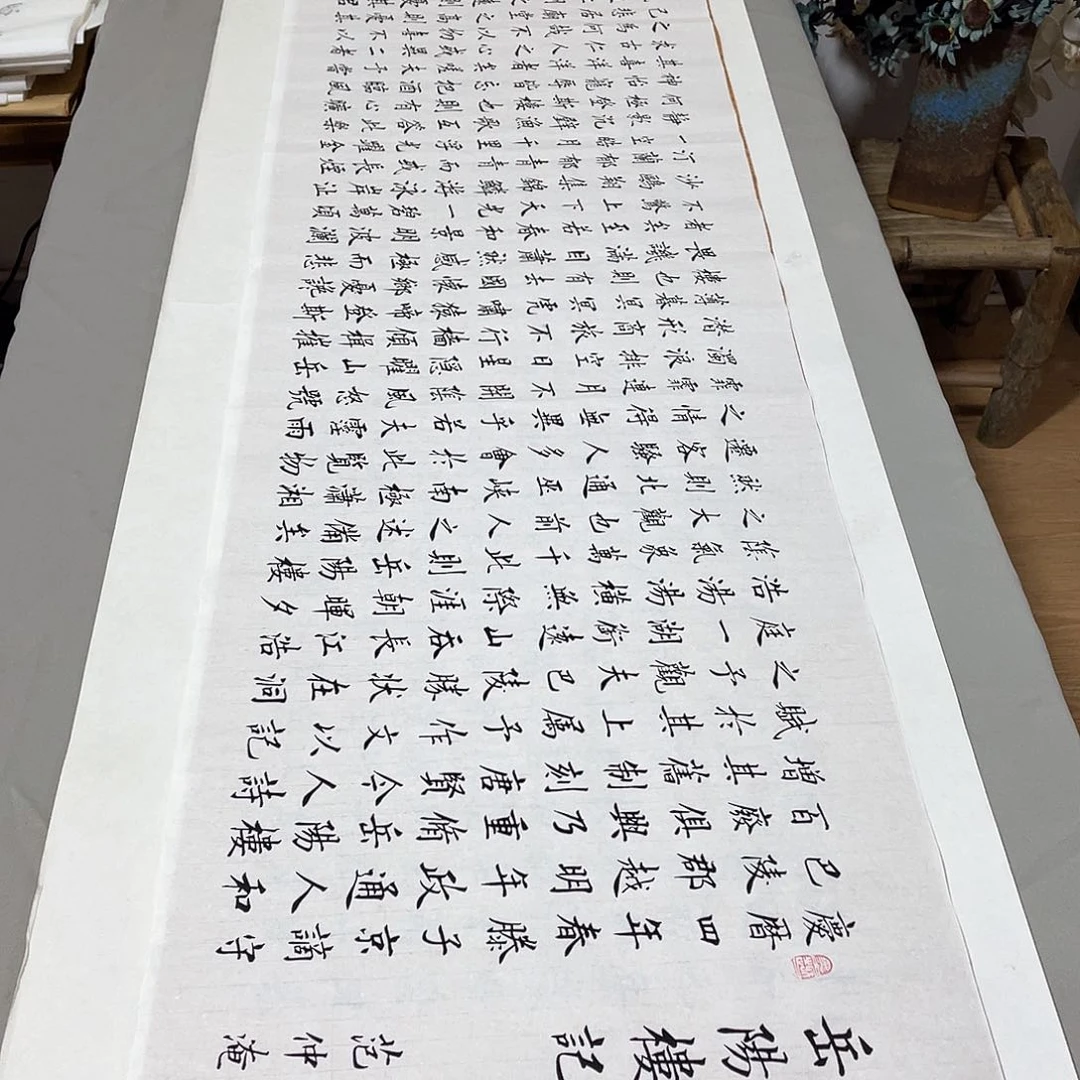 岳陽樓記
范仲淹
慶曆四年春滕子京謫守
巴陵郡越明年政通人和
百廢俱興乃重脩岳陽樓
增其舊制刻唐賢今人詩
賦於其上屬予作文以記
之予觀夫巴陵勝狀在洞
庭一湖銜遠山吞長江浩
浩湯湯橫無際涯朝暉夕
陰氣象萬千此則岳陽樓
之大觀也前人之述備矣
然則北通巫峽南極瀟湘
遷客騷人多會於此覽物
之情得無異乎若夫霪雨
霏霏連月不開陰風怒號
濁浪排空日星隱曜山岳
潛形商旅不行檣傾楫摧
薄暮冥冥虎嘯猿啼登斯
樓也則有去國懷鄉憂讒
畏譏滿目蕭然感極而悲
者矣至若春和景明波瀾
不驚上下天光一碧萬頃
沙鷗翔集錦鱗游泳岸芷
汀蘭郁郁青青而或長煙
一空皓月千里浮光耀金
靜影沉璧漁歌互答此樂
何極登斯樓也則有心曠
神怡寵辱皆忘把酒臨風
其喜洋洋者矣嗟夫予嘗
求古仁人之心或異二者
之為何哉不以物喜不以